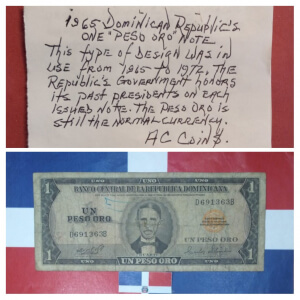 1965 Dominican Republic's
One "Peso Oro" Note
This type of design was in
use from 1965 to 1972. The
Republic's Government honors
its past presidents on each
issued note. The Peso Oro is
still the normal currency.
AC Coins.
1 UNO UNO 1
BANCO CENTRAL DE LA REPUBLICA DOMINICANA
UN
PESO ORO
D691363B
D691363B
UN PESO ORO
1 1